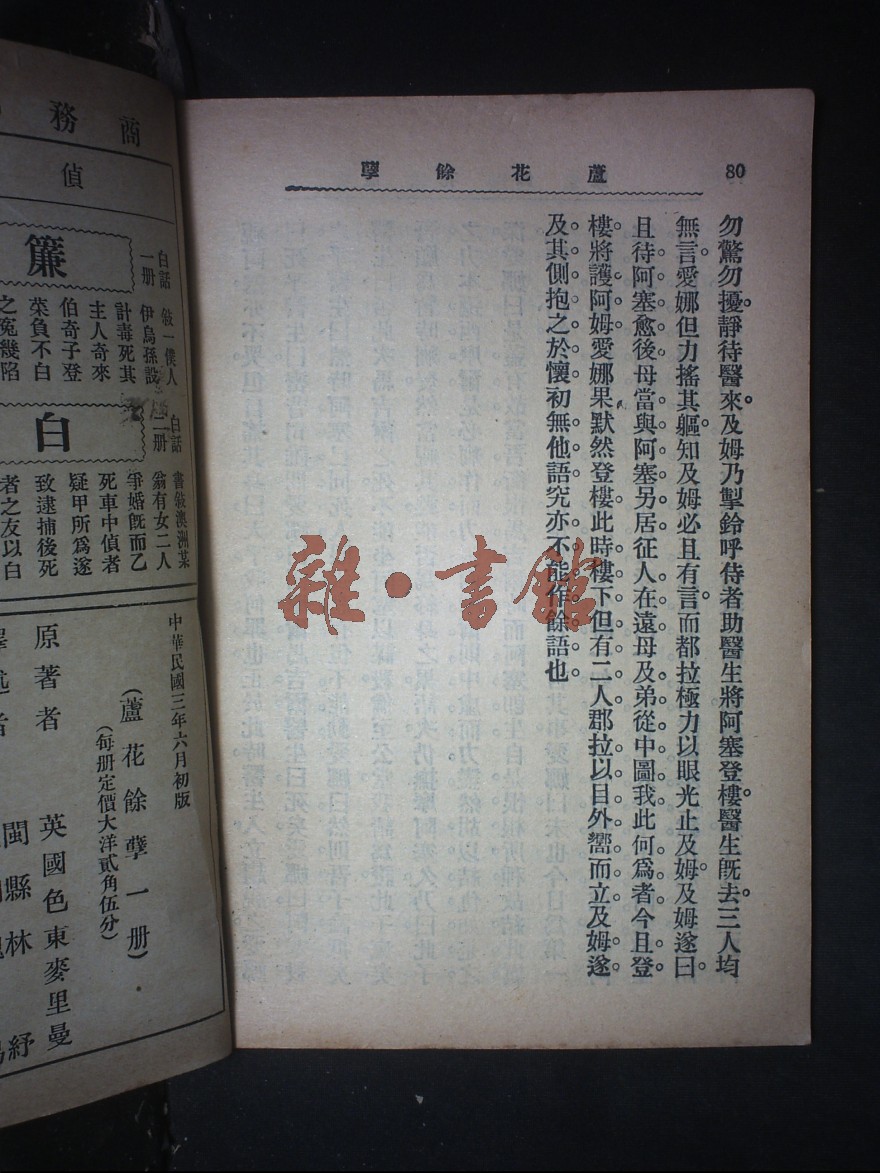 80
蘆花餘孽
勿驚勿擾。靜待醫來。及姆乃掣鈴呼侍者助醫生將阿塞登樓。醫生旣去。三人均
無言。愛娜但力搖其軀。知及姆必且有言。而都拉極力以眼光止及姆。及姆遂曰。
且待阿塞愈後。母當與阿塞另居。征人在遠。母及弟從中圖我。此何爲者。今且登
樓。將護阿姆。愛娜果默然登樓。此時樓下但有二人。郡拉以目外嚮而立。及姆遂
及其側。抱之於懷。初無他語。究亦不能作餘語也。
雜·書館
商務
偵
簾
白話
一册
敍一僕人
伊烏孫設
計毒死其
主人奇來
伯奇子登
萊負不白
之寃幾陷
白
白話
二册
書敍澳洲某
翁有女二人
爭婚旣而乙
死車中偵者
疑甲所爲遂
致逮捕後死
者之友以白
中華民國三年六月初版
（蘆花餘孽一册）
（每册定價大洋貳角伍分）
原著者
英國色東麥里曼
譯述者
閩縣林紓